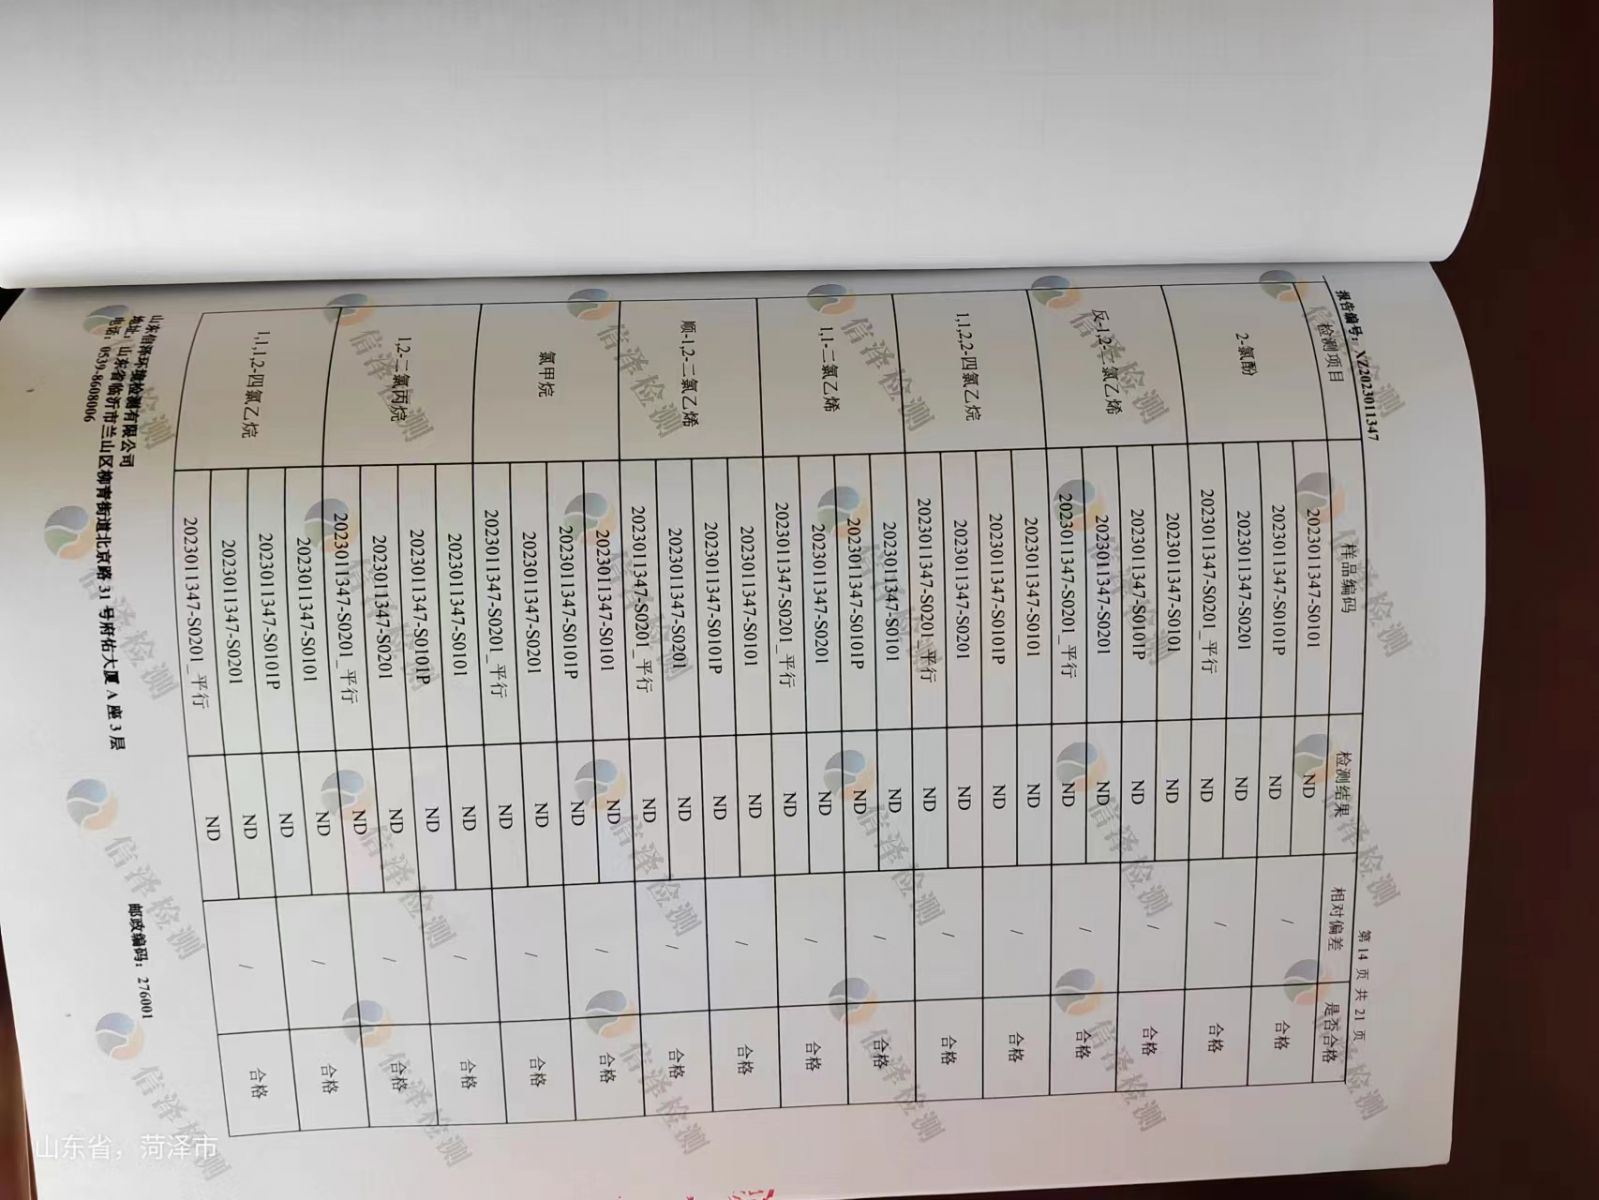 报告编号：XZ2023011347
第 14 页 共 21 页
检测项目 样品编码 检测结果 相对偏差 是否合格
2-氯酚 2023011347-S0101 ND / 合格
2023011347-S0101P ND
2023011347-S0201 ND / 合格
2023011347-S0201_平行 ND
反-1,2-二氯乙烯 2023011347-S0101 ND / 合格
2023011347-S0101P ND
2023011347-S0201 ND / 合格
2023011347-S0201_平行 ND
1,1,2,2-四氯乙烷 2023011347-S0101 ND / 合格
2023011347-S0101P ND
2023011347-S0201 ND / 合格
2023011347-S0201_平行 ND
1,1-二氯乙烯 2023011347-S0101 ND / 合格
2023011347-S0101P ND
2023011347-S0201 ND / 合格
2023011347-S0201_平行 ND
顺-1,2-二氯乙烯 2023011347-S0101 ND / 合格
2023011347-S0101P ND
2023011347-S0201 ND / 合格
2023011347-S0201_平行 ND
氯甲烷 2023011347-S0101 ND / 合格
2023011347-S0101P ND
2023011347-S0201 ND / 合格
2023011347-S0201_平行 ND
1,2-二氯丙烷 2023011347-S0101 ND / 合格
2023011347-S0101P ND
2023011347-S0201 ND / 合格
2023011347-S0201_平行 ND
1,1,1,2-四氯乙烷 2023011347-S0101 ND / 合格
2023011347-S0101P ND
2023011347-S0201 ND / 合格
2023011347-S0201_平行 ND
山东信泽环境检测有限公司
地址：山东省临沂市兰山区柳青街道北京路 31 号府佑大厦 A 座 3 层
邮政编码：276001
电话：0539-8608006
信泽检测
山东省，菏泽市